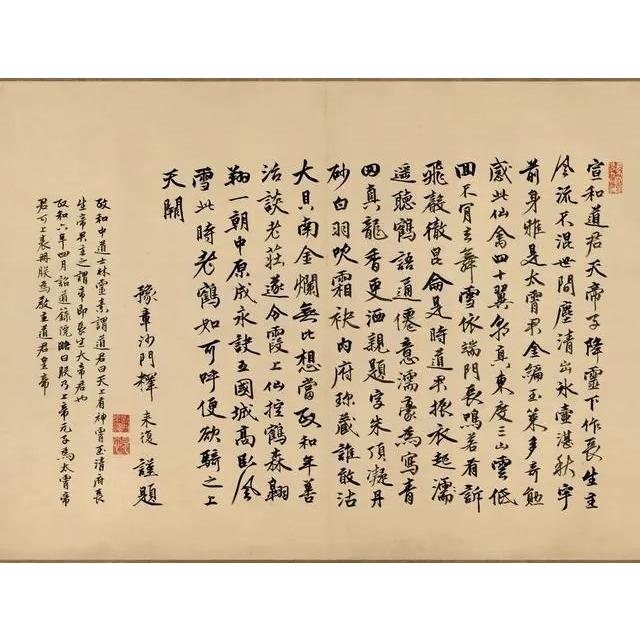 宣和道君天帝子降靈下作長生主
風流不混世間塵清出冰壺湛秋宇
前身雅是太霄君金編玉策多奇勛
感此仙禽四十翼朝真東度三山雲低
回不肯去舞雪依端門長鳴若有訴
飛聲徹昆侖是時道君振衣起濡
遥聽鶴語通僊意濡豪為寫青
田真龍香更洒親題字朱頂凝丹
砂白羽吹霜袂内府珍藏誰敢沽
大貝南金爛無比想當政和年善
治談老莊遂令霞上仙控鶴森翱
翔一朝中原成永訣五國城高臥風
雪此時老鶴如可呼便欲騎之上
天闕
豫章沙門釋 来復 謹題
政和中道士林靈素謂道君曰天上有神霄玉清府長
生帝君主之謂帝即長生大帝君也
政和六年四月詔道籙院略曰朕乃上帝元子為太霄帝
君可上表冊朕為教主道君皇帝